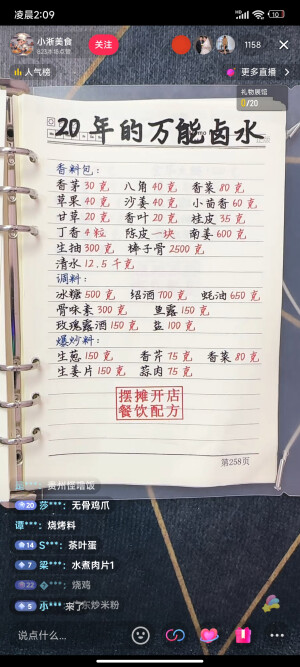 凌晨2:09
HD 5G 10
小淅美食
关注
1158
人气榜
更多直播
礼物展馆
0/20
20年的万能卤水
香料包：
香茅30克 八角40克 香菜80克
草果40克 沙姜40克 小茴香60克
甘草20克 香叶20克 桂皮35克
丁香4粒 陈皮一块 南姜600克
生抽300克 棒子骨2500克
清水12.5千克
调料：
冰糖500克 绍酒700克 蚝油650克
骨味素300克 鱼露150克
玫瑰露酒150克 盐100克
爆炒料：
生葱150克 香芹75克 香菜80克
生姜片150克 蒜肉75克
摆摊开店
餐饮配方
第258页
贵州怪噜饭
20 莎***：无骨鸡爪
谭***：烧烤料
14 S***：茶叶蛋
7 梁***：水煮肉片1
22 ***：烧鸡
5 小*** 来了
东炒米粉
说点什么...